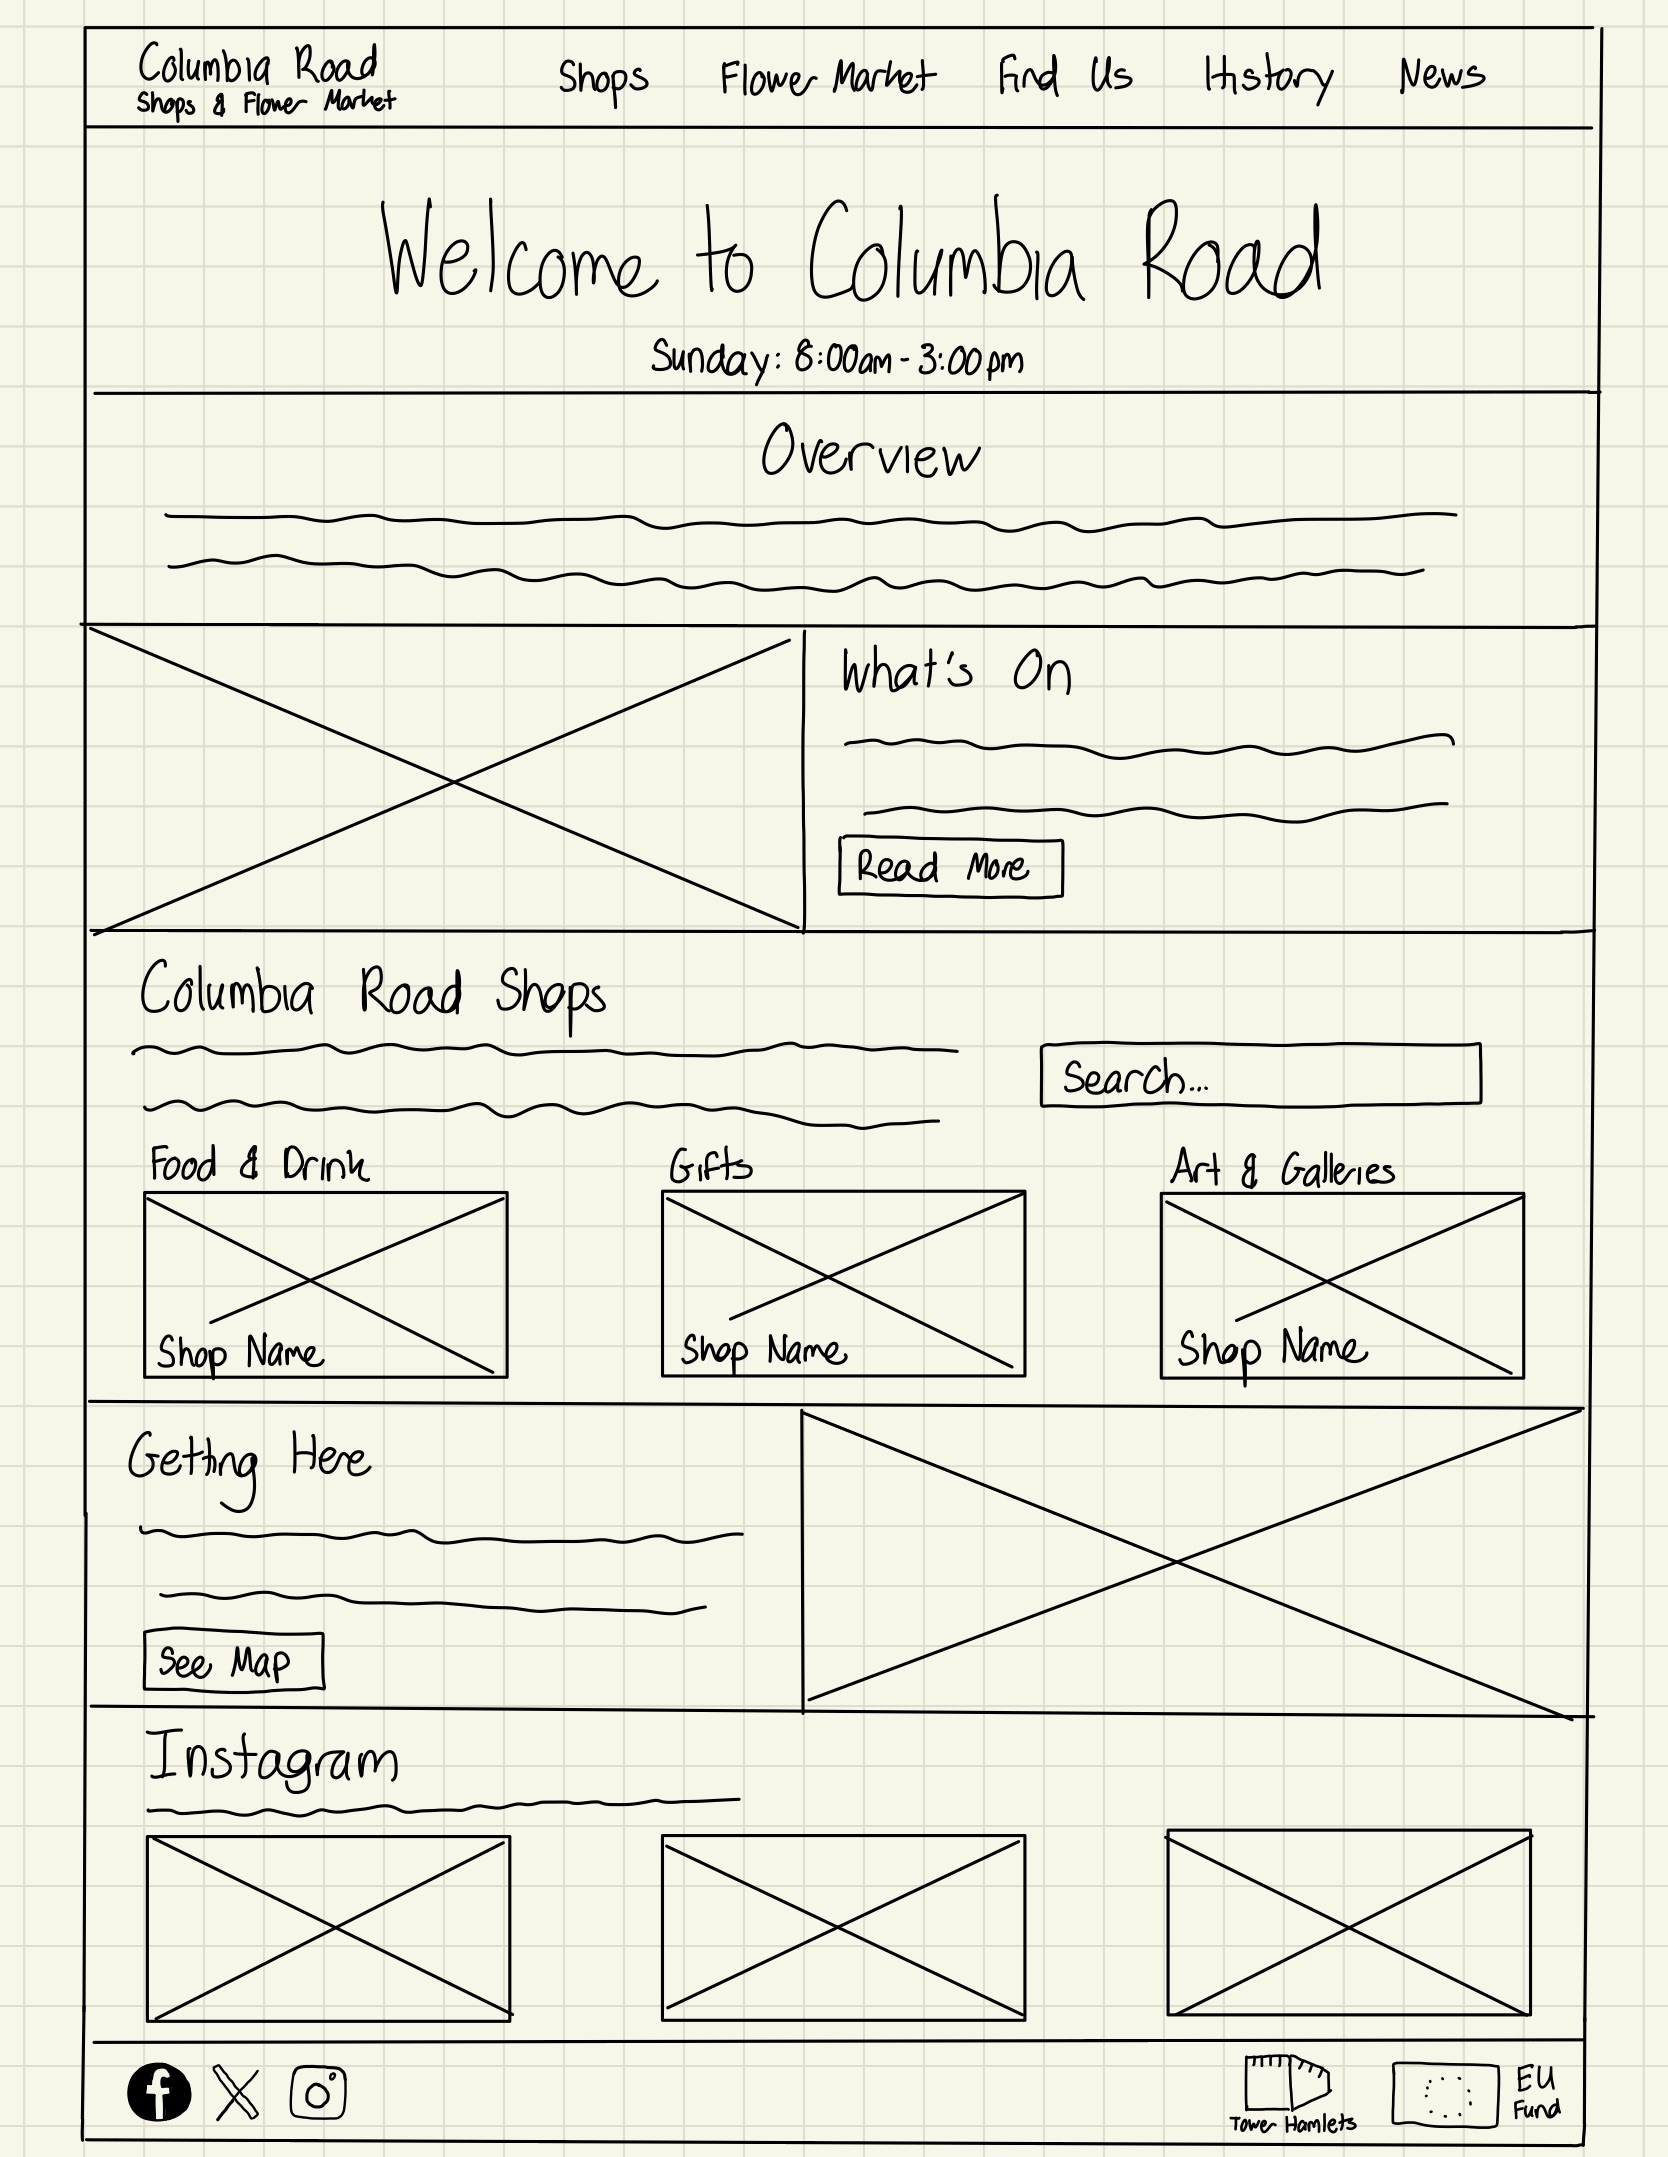 Columbia Road
Shops & Flower Market
Shops
Flower Market
Find Us
History
News
Welcome to Columbia Road
Sunday: 8:00am - 3:00pm
Overview
What's On
Read More
Columbia Road Shops
Search...
Food & Drink
Gifts
Art & Galleries
Shop Name
Shop Name
Shop Name
Getting Here
See Map
Instagram
f
Tower Hamlets
EU
Fund